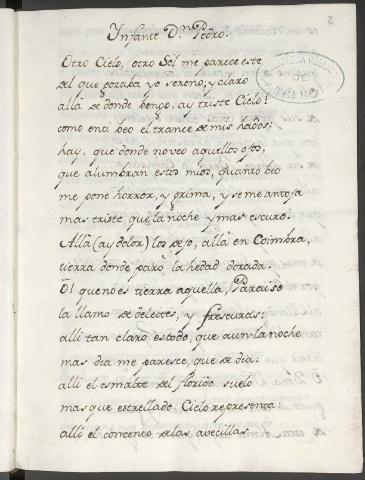 Ynfante D.n Pedro.
Otro Cielo, otro Sol me parece este
del que gozaba yo sereno, y claro
allà de donde bengo, ay triste Cielo!
como en ti beo el trance de mis hados;
hay, que donde no veo aquellos ojos,
que alumbran estos mios, quanto beo
me pone horror, y grima, y se me antoja
mas triste que la noche y mas escuro.
Allà (ay dolor) los dejo, allà en Coimbra,
tierra donde parò la hedad dorada.
O! que no es tierra aquella, Paraiso
la llamo de deleites, y frescuras:
alli tan claro es todo, que aun la noche
mas dia me paresce, que de dia:
alli el esmalte del florido suelo
mas que estrellado Cielo representa
alli el concento de las avecillas